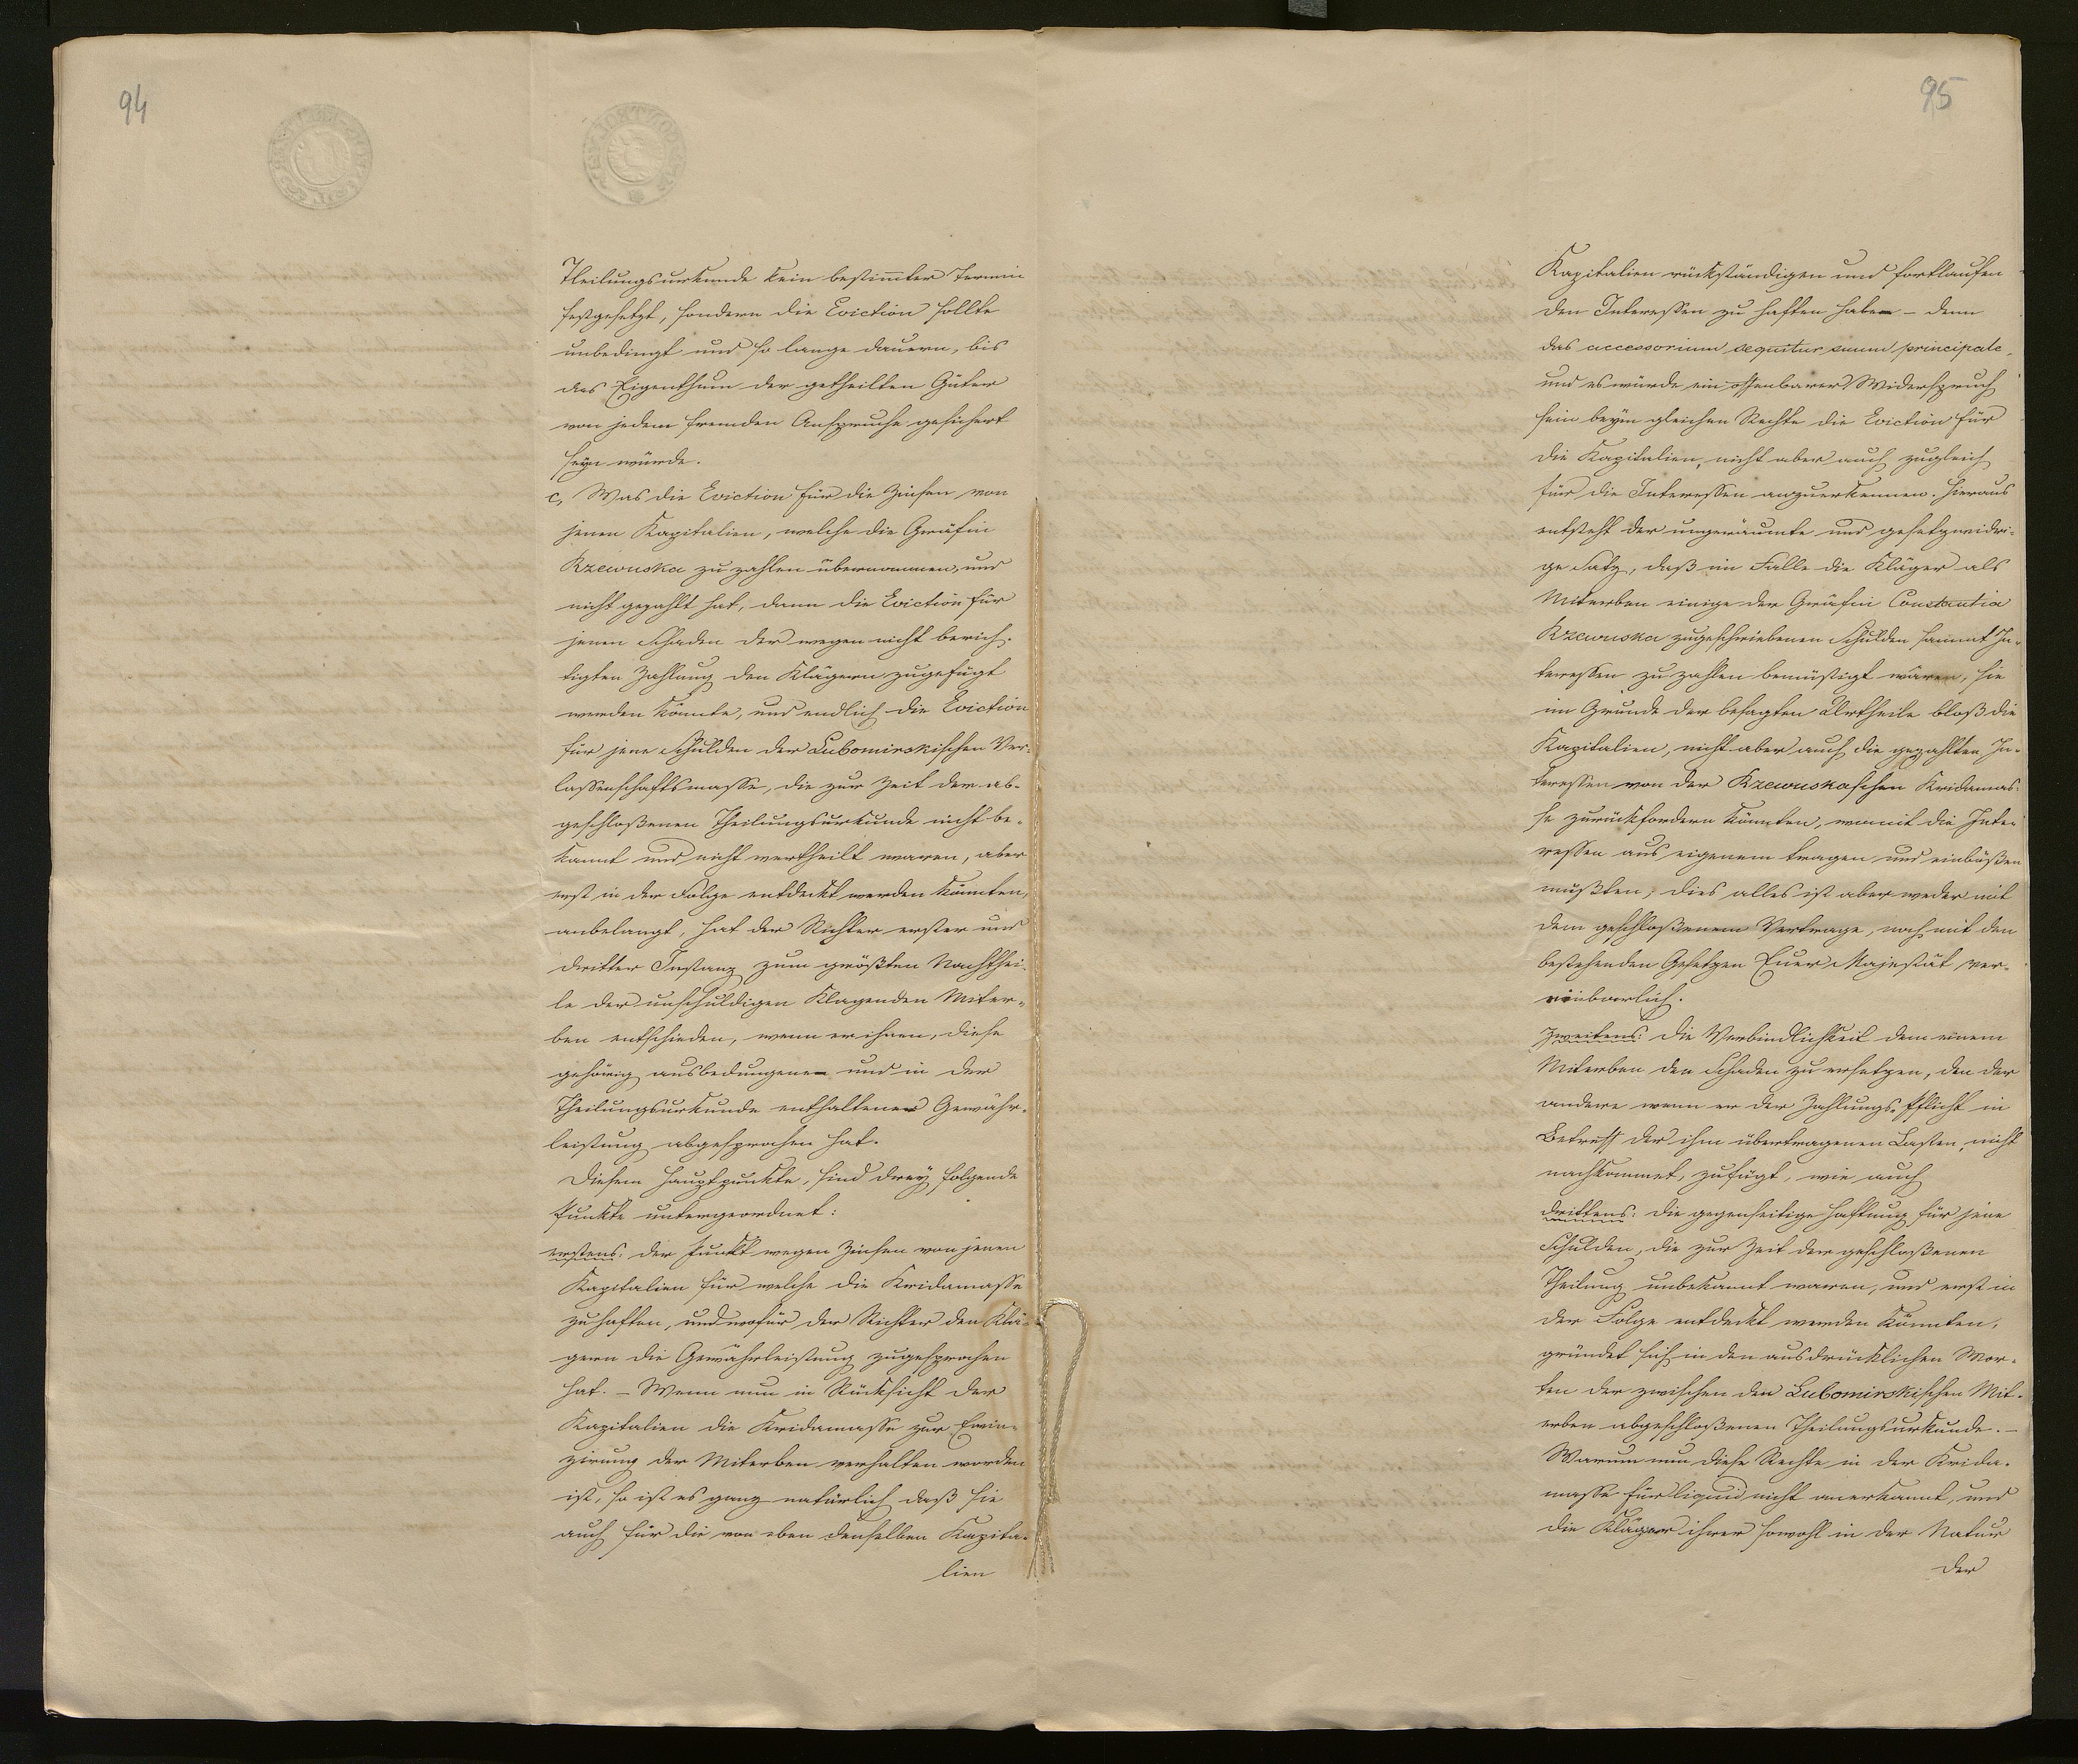 94
Theilungsurkunde kein bestim̅ter Termin
festgesetzt, sondern die Eviction sollte
unbedingt und so lange dauern, bis
das Eigenthum der getheilten Güter
von jedem fremden Anspruche gesichert
seyn würde.
c, Was die Eviction für die Zinsen von
jenen Kapitalien, welche die Gräfin
Rzewuska zu zahlen übernommen, und
nicht gezahlt hat, dann die Eviction für
jenen Schaden der wegen nicht berich-
tigten Zahlung den Klägern zugefügt
werden könnte, und endlich die Eviction
für jene Schulden der Lubomirskischen Ver-
lassenschaftsmasse, die zur Zeit der ab-
geschloßenen Theilungsurkunde nicht be-
kannt und nicht vertheilt waren, aber
erst in der Folge entdeckt werden könnten,
anbelangt, hat der Richter erster und
dritter Instanz zum größten Nachthei-
le der unschuldigen Klagenden Miter-
ben entschieden, wenn er ihnen, diese
gehörig ausbedungene und in der
Theilungsurkunde enthaltene Gewähr-
leistung abgesprochen hat.
Diesem Hauptpunkte, sind drey folgende
Punkte untergeordnet:
erstens: der Punkt wegen Zinsen von jenen
Kapitalien für welche die Kridamasse
zu haften, und wofür der Richter den Klä-
gern die Gewährleistung zugesprochen
hat. – Wenn nun in Rücksicht der
Kapitalien die Kridamasse zur Evin-
zirung der Miterben verhalten worden
ist, so ist es ganz natürlich daß sie
auch für die von eben denselben Kapita-
lien
95
Kapitalien rückständigen und fortlaufen-
den Interessen zu haften habe – denn
das accessorium sequitur suum principale,
und es würde ein offenbarer Widerspruch
sein beym gleichen Rechte die Eviction für
die Kapitalien, nicht aber auch zugleich
für die Interessen anzuerkennen. Hieraus
entsteht der ungeräumte und gesetzwidri-
ge Satz, daß im Falle die Kläger als
Miterben einige der Gräfin Constantia
Rzewuska zugeschriebenen Schulden sammt In-
teressen zu zahlen bemüßigt wären, sie
im Grunde der besagten Urtheile bloß die
Kapitalien, nicht aber auch die gezahlten In-
teressen von der Rzewuskaschen Kridamas-
se zurückfordern könnten, somit die Inte-
ressen aus eigenem tragen und einbüßen
müßten; dies alles ist aber weder mit
dem geschloßenem Vertrage, noch mit den
bestehenden Gesetzen Euer Majestät ver-
einbarlich.
Zweitens: die Verbindlichkeit dem einem
Miterben den Schaden zu ersetzen, den der
andere wenn er der Zahlungs-Pflicht in
Betreff der ihm übertragenen Lasten, nicht
nachkommet, zufügt, wie auch
drittens: die gegenseitige Haftung für jene
Schulden, die zur Zeit der geschloßenen
Theilung unbekannt waren, und erst in
der Folge entdeckt werden könnten,
gründet sich in den ausdrücklichen Wor-
ten der zwischen den Lubomirskischen Mit-
erben abgeschloßenen Theilungsurkunde. –
Warum nun diese Rechte in der Krida-
masse für liquid nicht anerkannt, und
die Kläger ihrer sowohl in der Natur
der